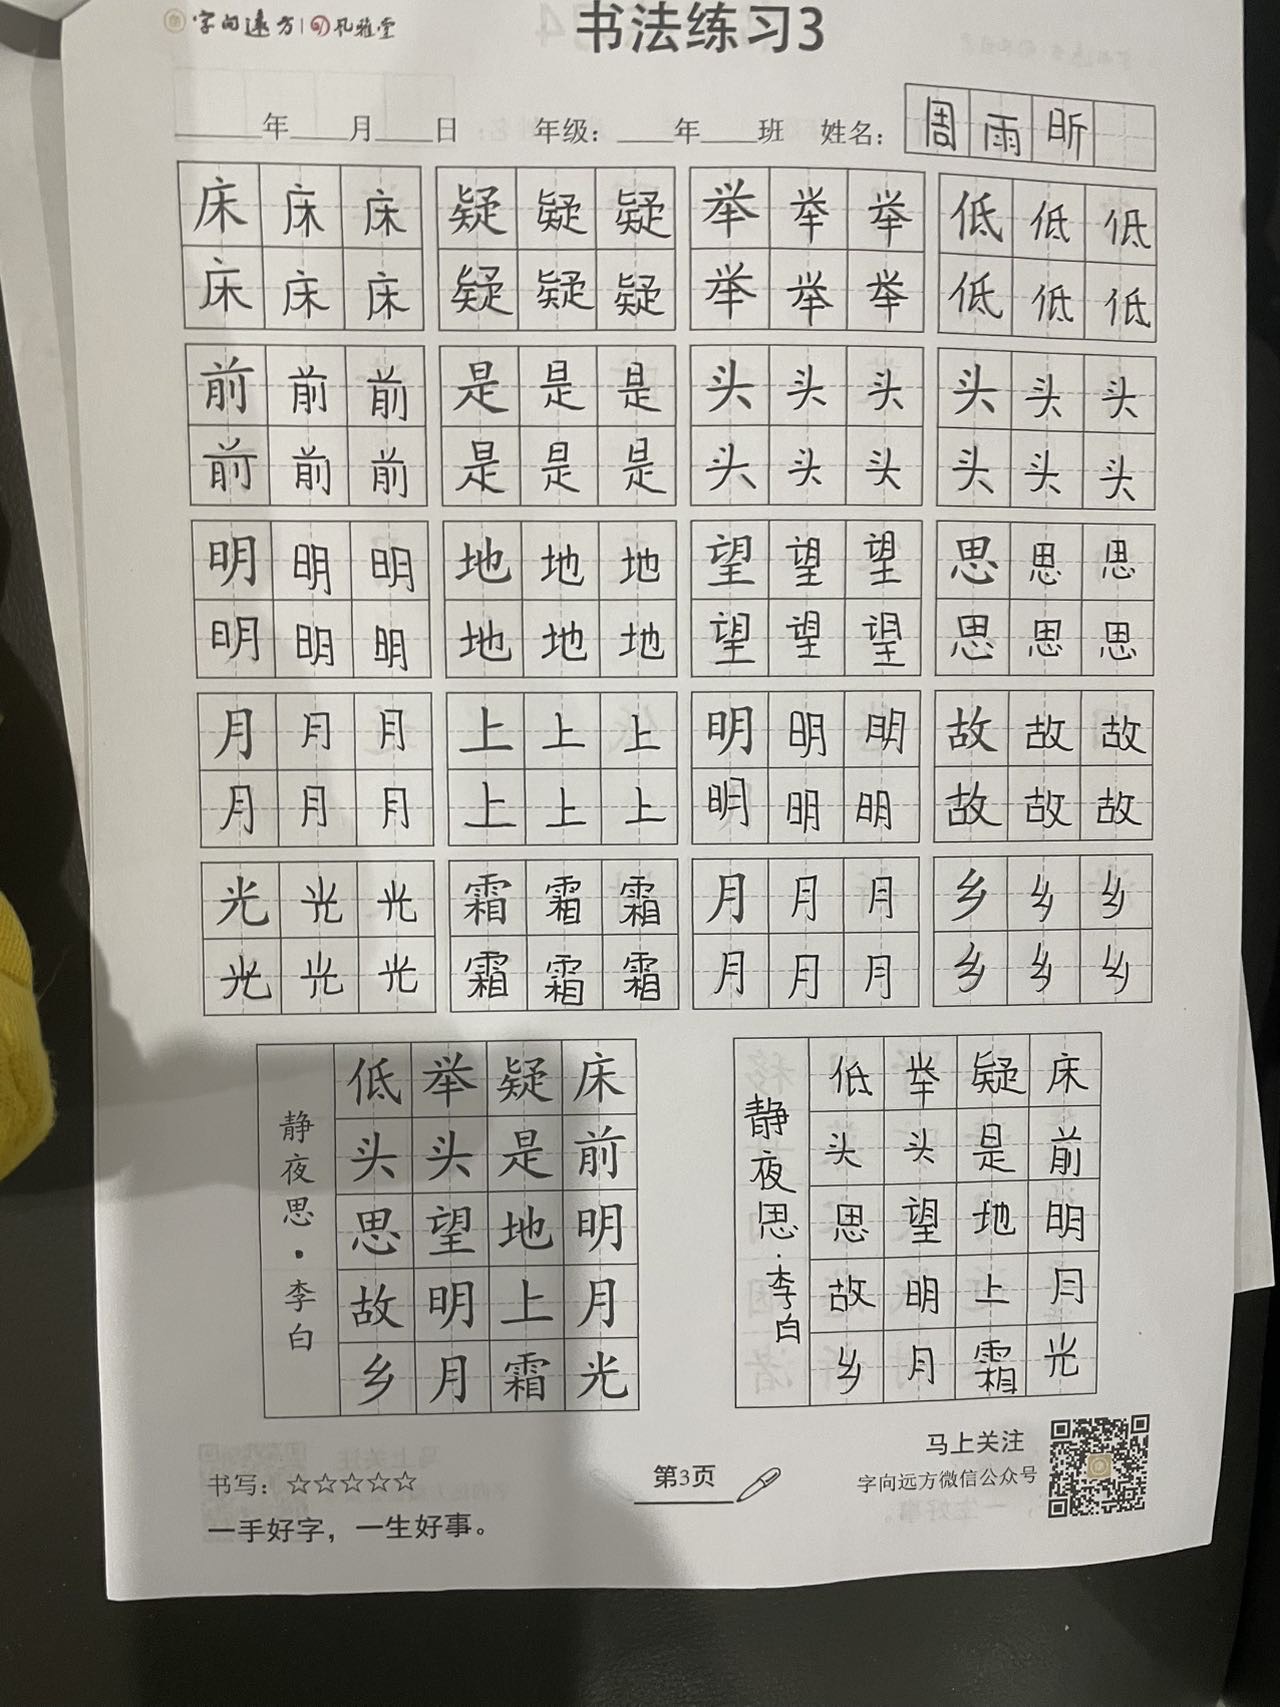 字向远方 | 孔雅堂
书法练习3
____年____月____日 年级：____年____班 姓名：周雨昕
床床床 疑疑疑 举举举 低低低
床床床 疑疑疑 举举举 低低低
前前前 是是是 头头头 头头头
前前前 是是是 头头头 头头头
明明明 地地地 望望望 思思思
明明明 地地地 望望望 思思思
月月月 上上上 明明明 故故故
月月月 上上上 明明明 故故故
光光光 霜霜霜 月月月 乡乡乡
光光光 霜霜霜 月月月 乡乡乡
床前明月光
疑是地上霜
举头望明月
低头思故乡
静夜思·李白
床前明月光
疑是地上霜
举头望明月
低头思故乡
静夜思·李白
书写：☆☆☆☆☆
一手好字，一生好事。
第3页
马上关注
字向远方微信公众号